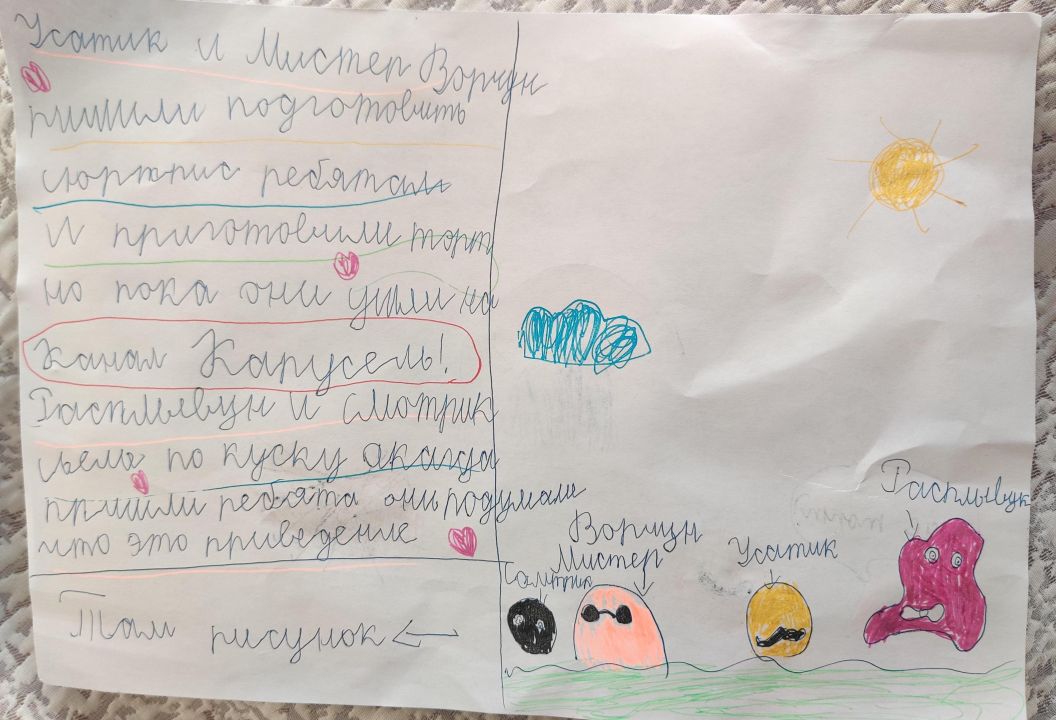 Усатик и Мистер Ворчун
ришили подготовить
сюрприс ребятам
И приготовили торт
но пока они ушли на
канал Карусель!
Расплывун и смотрик
сьели по куску
пришли ребята они подумали
что это приведение
Там рисунок
Расплывун
Ворчун
Мистер
Усатик